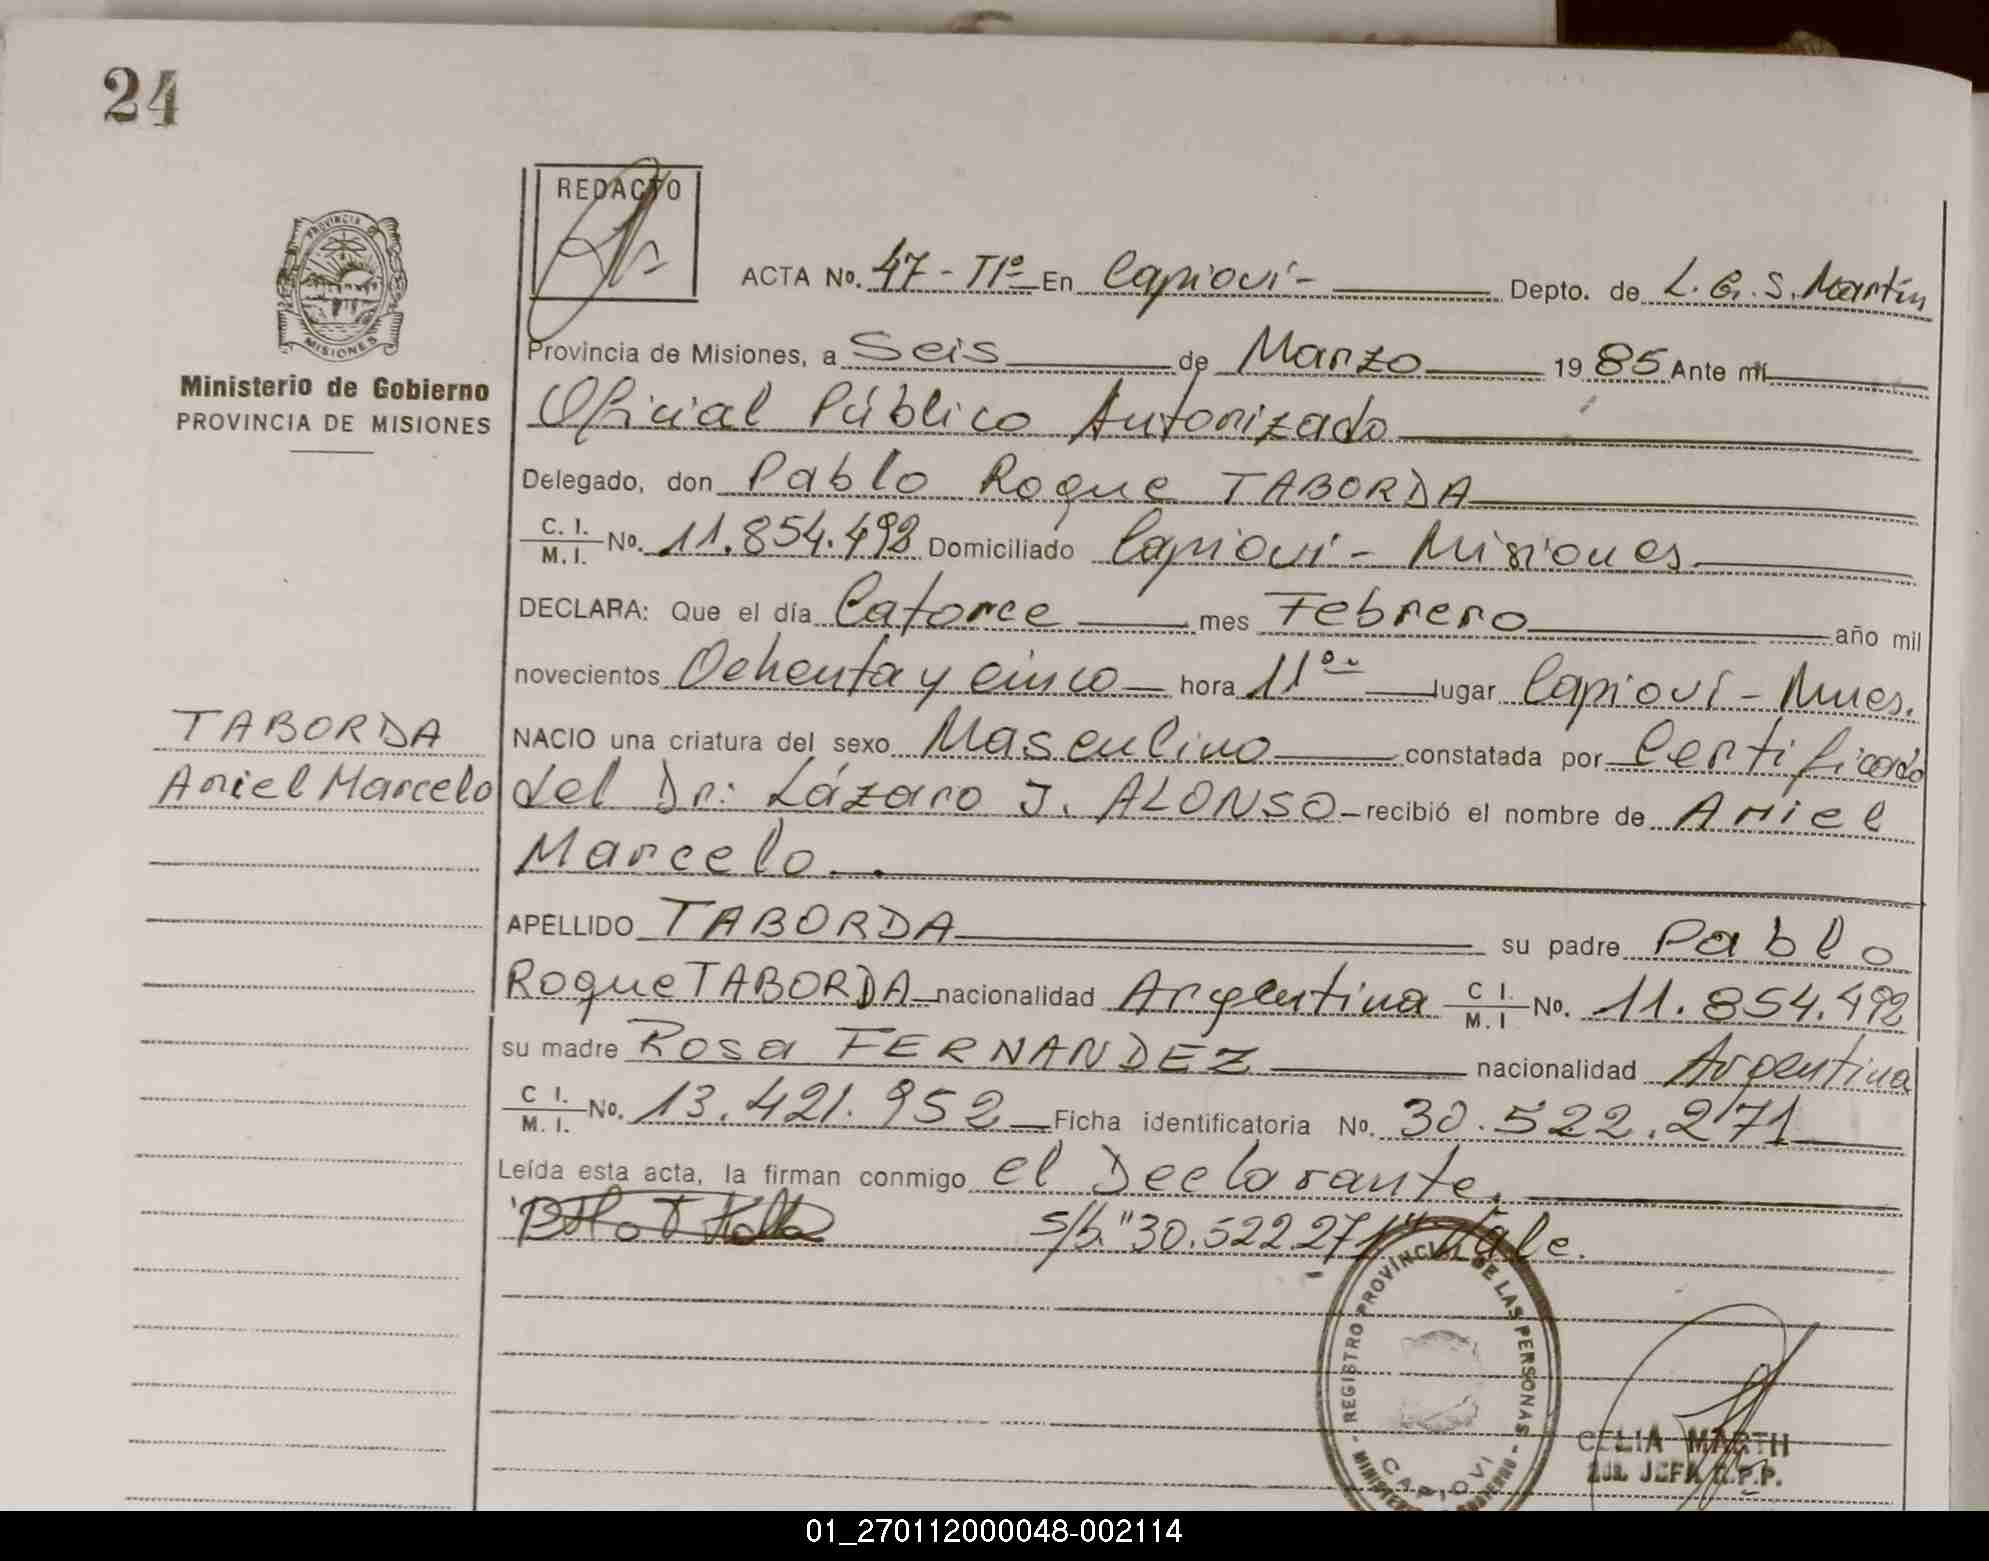 24
REDACTO
ACTA No. 47 - Tº 1º En Capioví - Depto. de L. G. S. Martín
MISIONES
Provincia de Misiones, a Seis de Marzo 1985 Ante mí
Ministerio de Gobierno
PROVINCIA DE MISIONES
Oficial Público Autorizado
Delegado, don Pablo Roque TABORDA
C. I. / M. I. No. 11.854.492 Domiciliado Capioví - Misiones
DECLARA: Que el día Catorce mes Febrero año mil
novecientos Ochenta y cinco hora 11 lugar Capioví - Mnes.
TABORDA
Ariel Marcelo
NACIO una criatura del sexo Masculino constatada por Certificado
del Dr: Lázaro J. ALONSO recibió el nombre de Ariel
Marcelo.
APELLIDO TABORDA su padre Pablo
Roque TABORDA nacionalidad Argentina C I. / M. I No. 11.854.492
su madre Rosa FERNANDEZ nacionalidad Argentina
C I. / M. I. No. 13.421.952 Ficha identificatoria No. 30.522.271
Leída esta acta, la firman conmigo el Declarante.
s/b. "30.522.271" Vale.
REGISTRO PROVINCIAL DE LAS PERSONAS
CAPIOVI
CELIA MARTH
JEFA R.P.P.
01_270112000048-002114